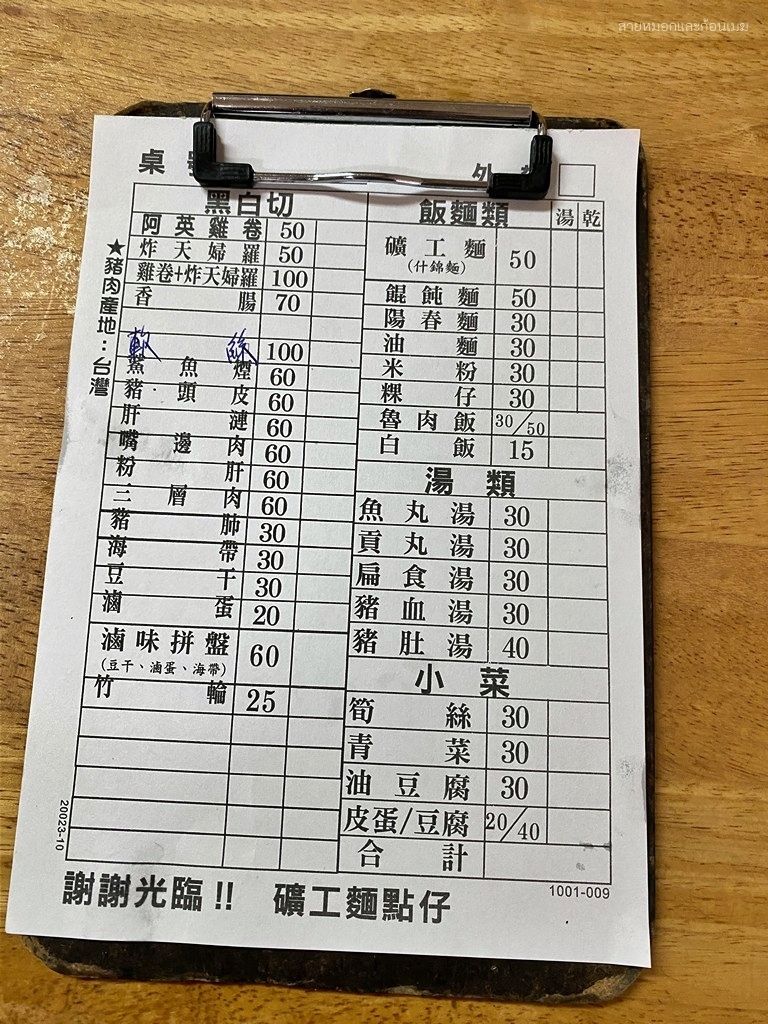 สายหมอกและก้อนเมฆ
桌
外
黑白切
阿英雞卷 50
炸天婦羅 50
雞卷+炸天婦羅 100
香腸 70
軟絲 100
鯊魚煙 60
豬頭皮 60
肝連 60
嘴邊肉 60
粉肝 60
三層肉 60
豬肺 30
海帶 30
豆干 30
滷蛋 20
滷味拼盤 60
(豆干、滷蛋、海帶)
竹輪 25
★豬肉產地:台灣
20023-10
飯麵類 湯 乾
礦工麵 50
(什錦麵)
餛飩麵 50
陽春麵 30
油麵 30
米粉 30
粿仔 30
魯肉飯 30/50
白飯 15
湯類
魚丸湯 30
貢丸湯 30
扁食湯 30
豬血湯 30
豬肚湯 40
小菜
筍絲 30
青菜 30
油豆腐 30
皮蛋/豆腐 20/40
合計
1001-009
謝謝光臨!! 礦工麵點仔